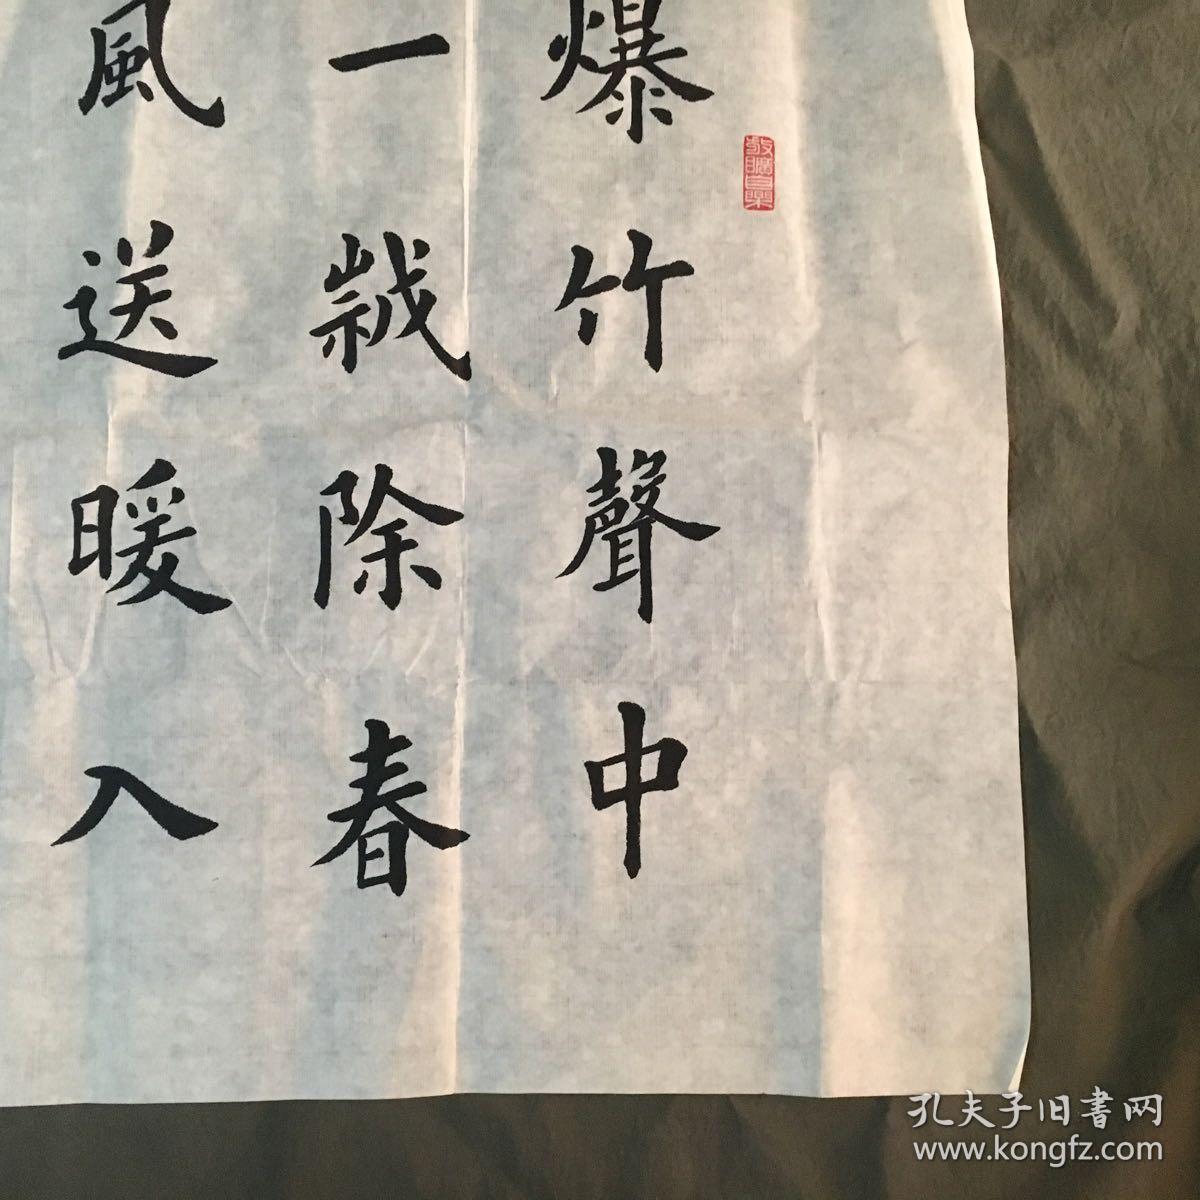 爆竹聲中
一歲除春
風送暖入
孔夫子旧書网
www.kongfz.com